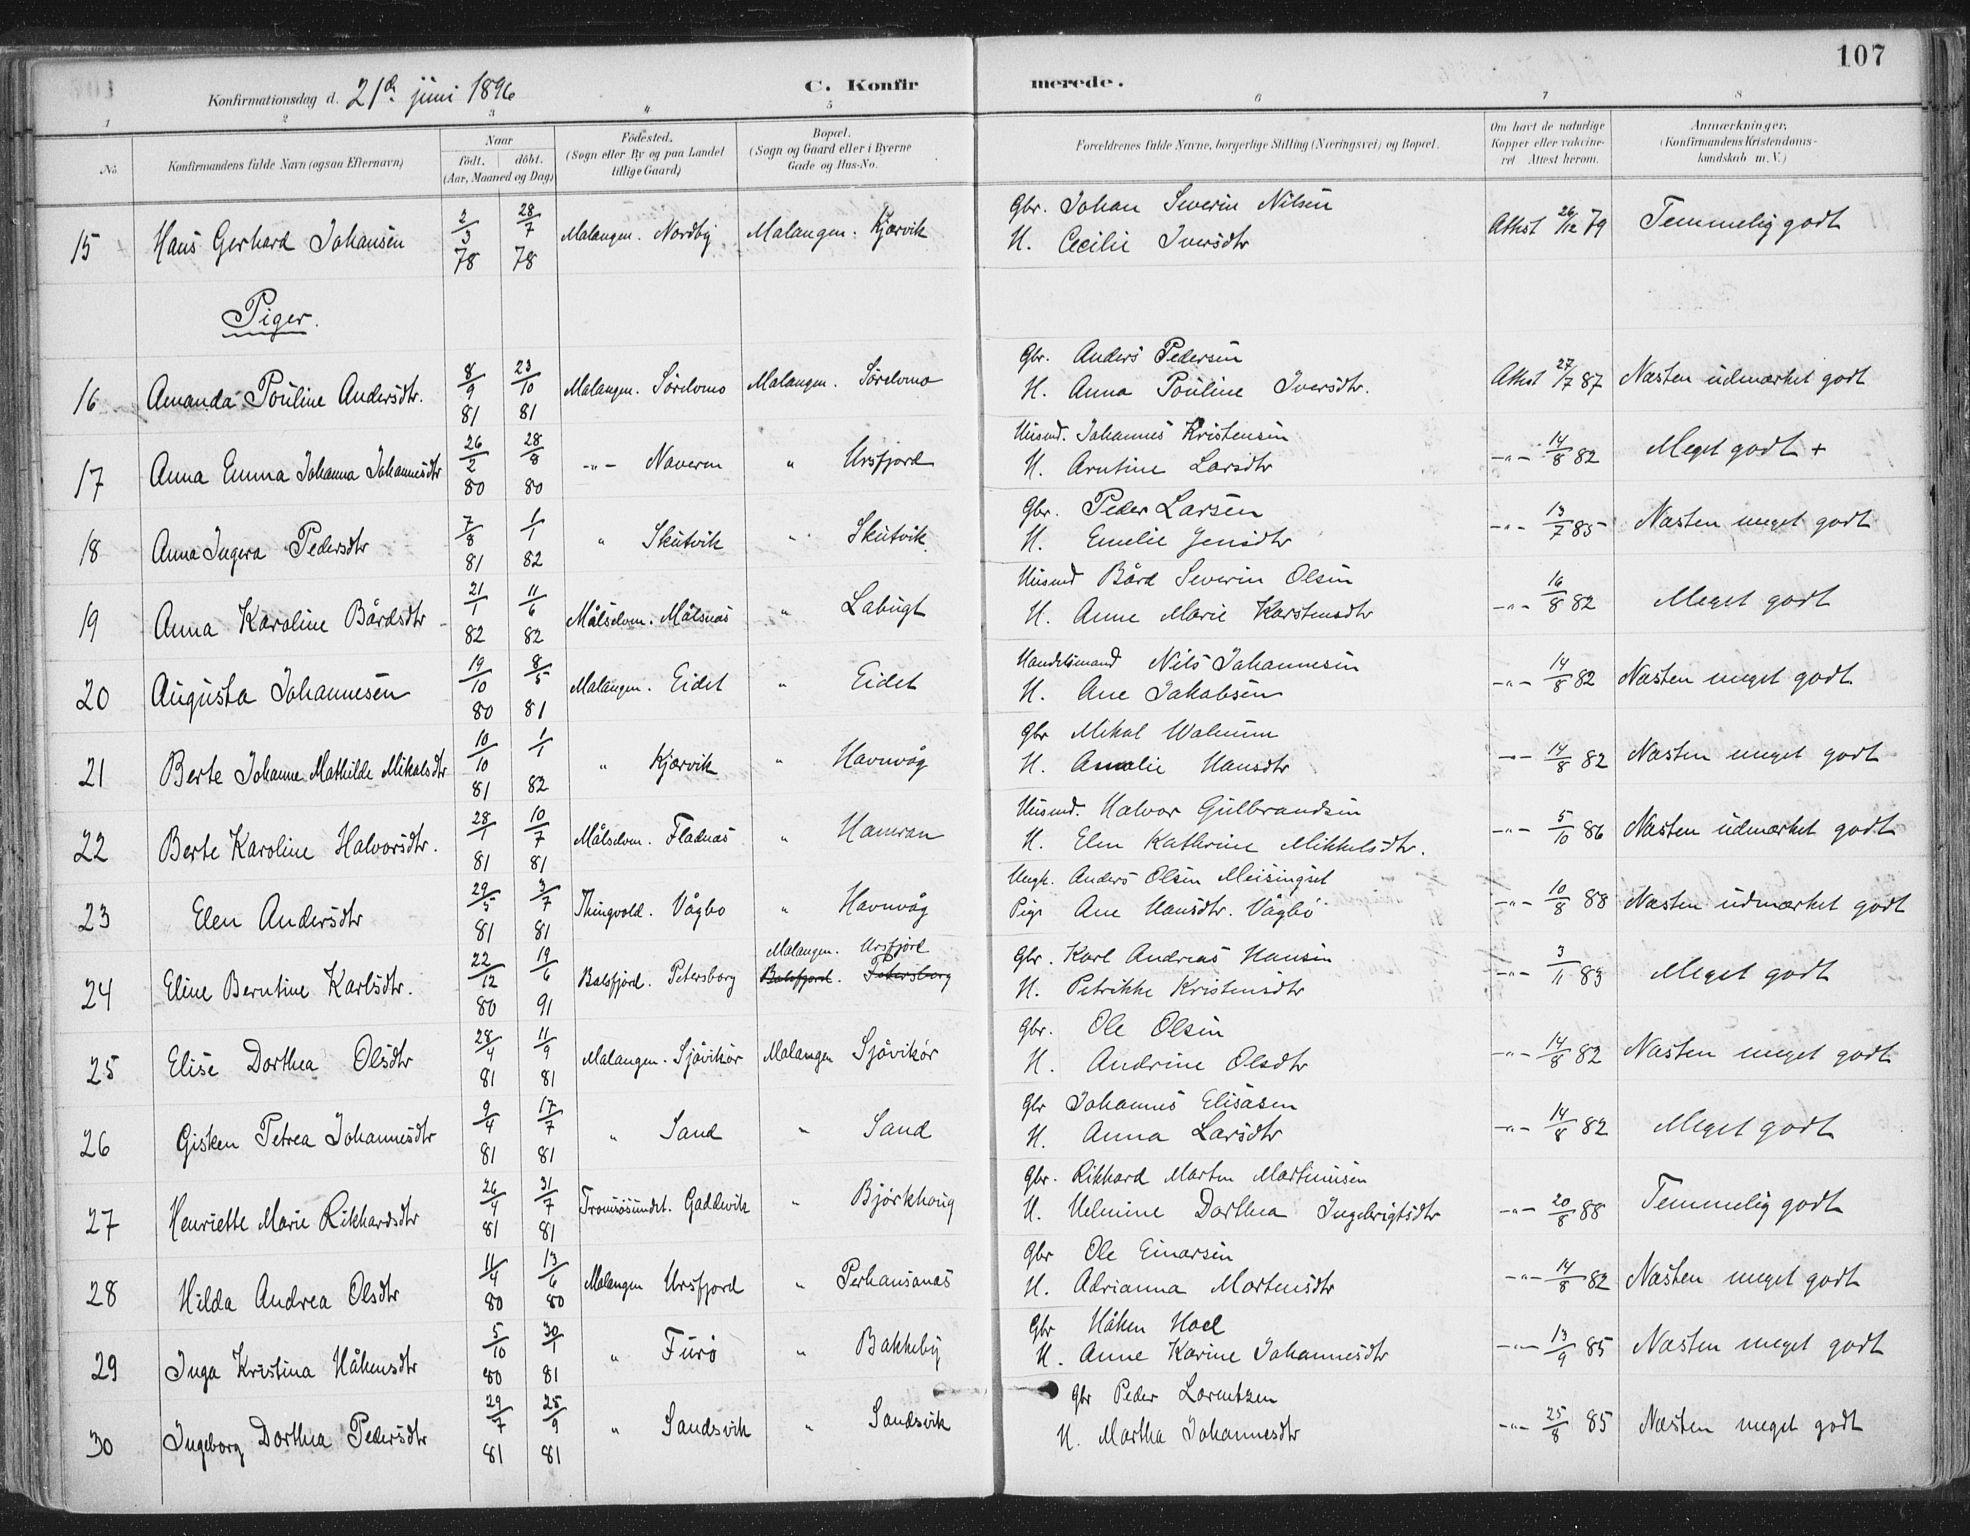 107
Konfirmationsdag d. 21de juni 1896 C. Konfirmerede.
1 2 3 4 5 6 7 8
No. Konfirmandens fulde Navn (ogsaa Efternavn) Naar født. døbt. (Aar, Maaned og Dag) Fødested. (Sogn eller By og paa Landet tillige Gaard) Bopæl. (Sogn og Gaard eller i Byerne Gade og Hus-No. Forældrenes fulde Navne, borgerlige Stilling (Næringsvei) og Bopæl. Om havt de naturlige Kopper eller vakcineret Attest herom. Anmærkninger. (Konfirmandens Kristendomskundskab m. V.)
15 Hans Gerhard Johansen 2/3 78 28/7 78 Malangen. Nordby Malangen. Kjærvik Gbr. Johan Severin Nilsen
H. Cecilie Iversdtr Attest 26/12 79 Temmelig godt
Piger.
16 Amanda Pouline Andersdtr. 8/9 81 23/10 81 Malangen. Sørelvmo Malangen. Sørelvmo Gbr. Anders Pedersen
H. Anna Pouline Iversdtr. Attest 27/7 87 Næsten udmærket godt
17 Anna Emma Johanna Johannesdtr 26/2 80 28/8 80 -"- Naveren " Ursfjord Husmd. Johannes Kristensen
H. Arntine Larsdtr -"- 14/8 82 Meget godt +
18 Anna Ingera Pedersdtr 7/8 81 1/1 82 " Skutvik " Skutvik Gbr. Peder Larsen
H. Emelie Jensdtr -"- 13/7 85 Næsten meget godt
19 Anna Karoline Bårdsdtr 21/1 82 11/6 82 Målselven. Målsnes " Labugt Husmd Bård Severin Olsen
H. Anne Marie Karstensdtr -"- 16/8 82 Meget godt
20 Augusta Johannesen 19/10 80 8/5 81 Malangen. Eidet " Eidet Handelsmand Nils Johannesen
H. Ane Jakobsen -"- 14/8 82 Næsten meget godt
21 Berte Johanne Mathilde Mikalsdtr 10/10 81 1/1 82 " Kjærvik " Havnvåg Gbr Mikal Walnum
H. Amalie Hansdtr -"- 14/8 82 Næsten meget godt
22 Berte Karoline Halvorsdtr. 28/1 81 10/7 81 Målselven. Fladnes " Hamran Husmd. Halvor Gulbrandsen
H. Elen Kathrine Mikkelsdtr. -"- 5/10 86 Næsten udmærket godt
23 Elen Andersdtr 29/5 81 3/7 81 Thingvold. Vågbo " Havnvåg Ungk. Anders Olsen Meisingset
Pige Ane Hansdtr. Vågbö -"- 10/8 88 Næsten udmærket godt
24 Eline Berntine Karlsdtr. 22/12 80 19/6 91 Balsfjord. Petersborg Malangen. Ursfjord
Balsfjord. Petersborg Gbr. Karl Andreas Hansen
H. Petrikke Kristensdtr -"- 3/11 83 Meget godt
25 Elise Dorthea Olsdtr 28/4 81 11/9 81 Malangen. Sjåvikør Malangen Sjåvikør Gbr. Ole Olsen
H. Andrine Olsdtr -"- 14/8 82 Næsten meget godt
26 Gisken Petrea Johannesdtr 9/4 81 17/7 81 " Sand " Sand Gbr Johannes Elisasen
H. Anna Larsdtr -"- 14/8 82 Meget godt
27 Henriette Marie Rikhardsdtr 26/4 81 31/7 81 Tromsøsundet. Gaddevik " Bjørkhaug Gbr. Rikhard Marten Martinusen
H. Helmine Dorthea Ingebrigtsdtr -"- 20/8 88 Temmelig godt
28 Hilda Andrea Olsdtr 11/4 80 13/6 80 Malangen Ursfjord " Perhansanæs Gbr Ole Einarsen
H. Adrianna Mortensdtr -"- 14/8 82 Næsten meget godt
29 Inga Kristina Håkensdtr 5/10 80 30/1 81 " Furø " Bakkeby Gbr Håken Hoel
H. Anne Karine Johannesdtr -"- 13/9 85 Næsten meget godt
30 Ingeborg Dorthea Pedersdtr 29/7 81 25/9 81 " Sandsvik " Sandsvik Gbr Peder Lorentzen
H. Martha Johannesdtr -"- 25/8 85 Næsten meget godt